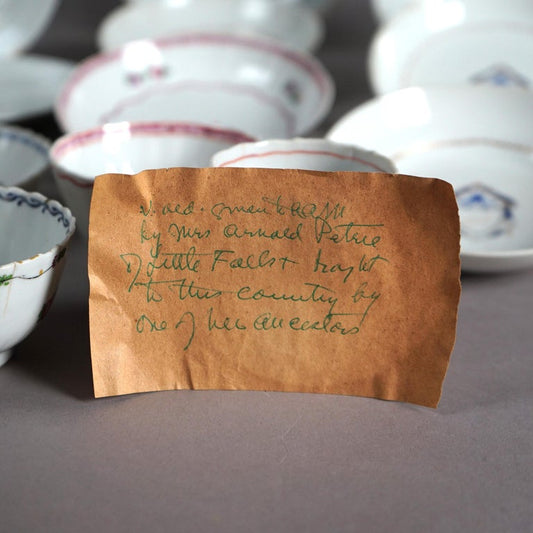 by Mrs Arnold Petrie
of Little Falls + braght
to this country by
one of her ancestors